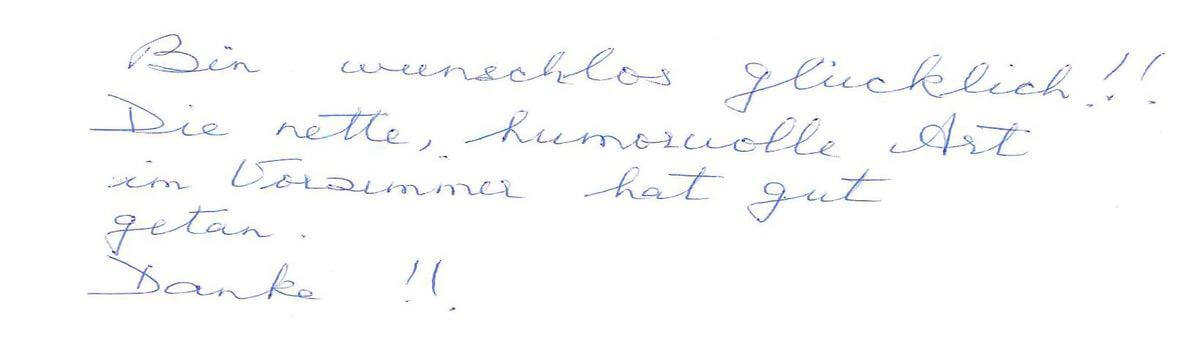 Bin wunschlos glücklich!!
Die nette, humorvolle Art
im Vorzimmer hat gut
getan.
Danke !!